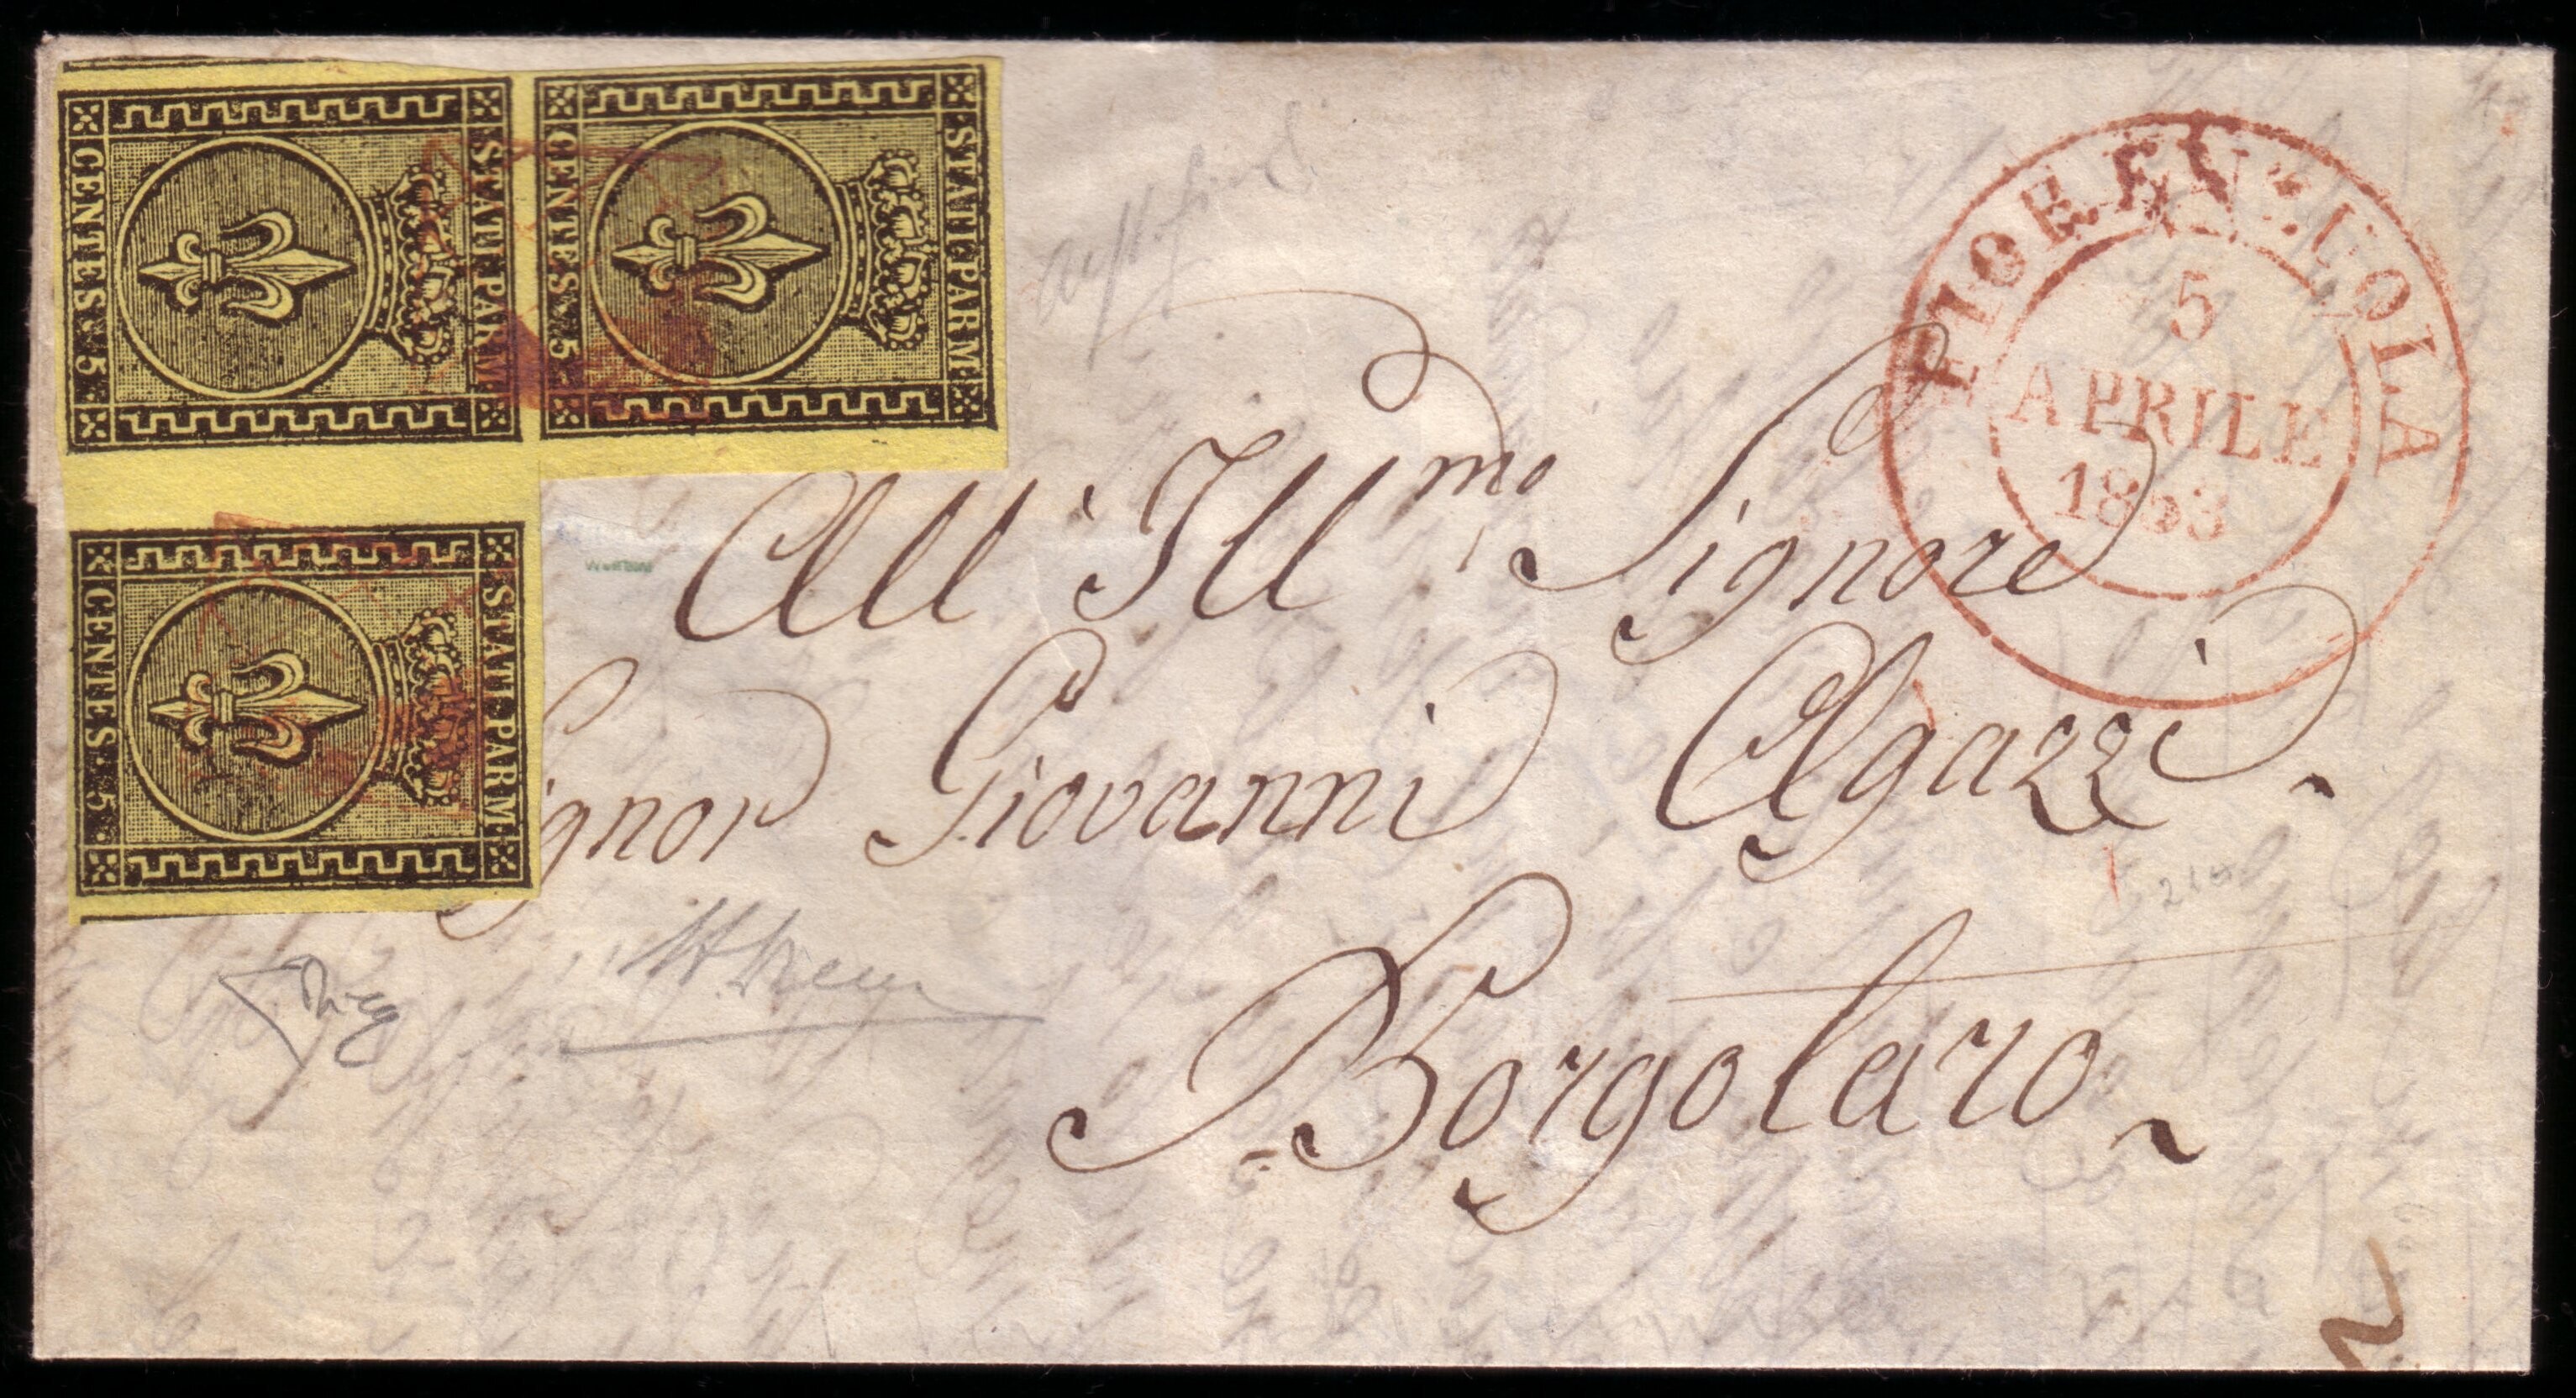 STATI PARM.
CENTES. 5
STATI PARM.
CENTES. 5
STATI PARM.
CENTES. 5
FIORENZUOLA
5
APRILE
1853
All' Ill.mo Signore
Signor Giovanni Agazzi.
Borgotaro